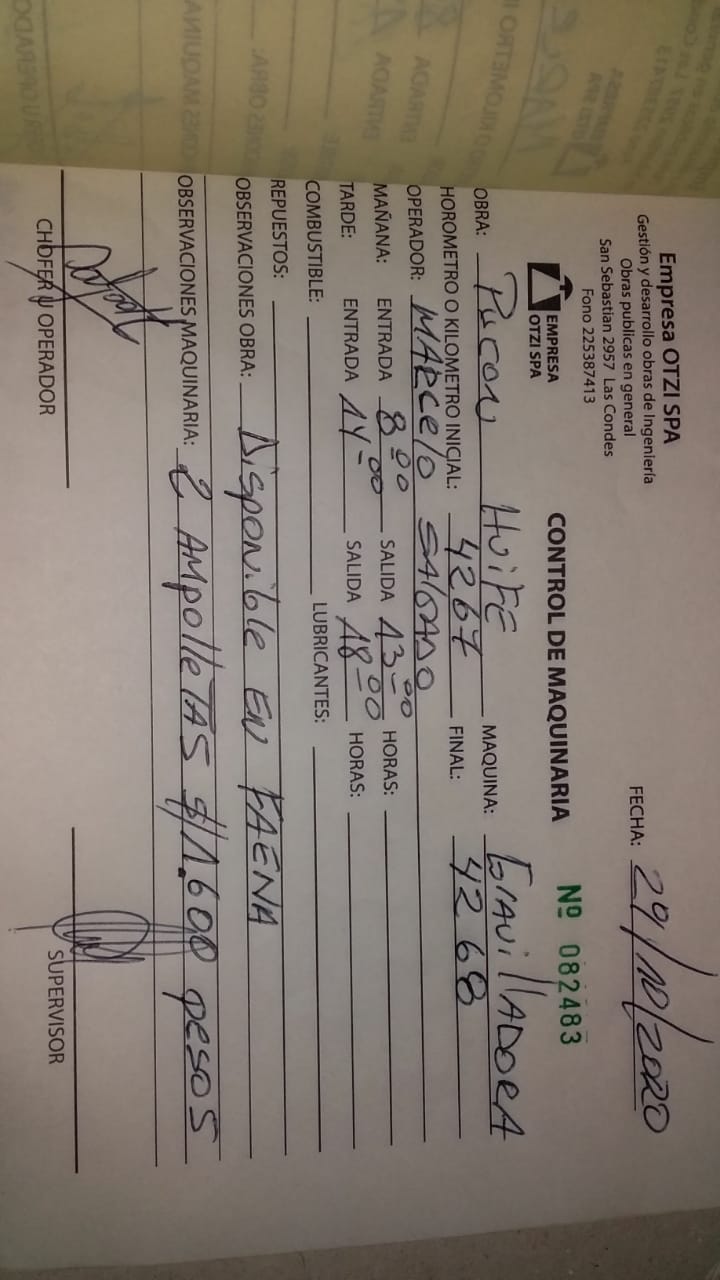 Empresa OTZI SPA
Gestión y desarrollo obras de Ingeniería
Obras publicas en general
San Sebastian 2957 Las Condes
Fono 225387413
FECHA: 29/10/2020
EMPRESA
OTZI SPA
CONTROL DE MAQUINARIA Nº 082483
OBRA: Pucon Huife MAQUINA: GravillADORA
HOROMETRO O KILOMETRO INICIAL: 4267 FINAL: 4268
OPERADOR: MARCelO SALGADO
MAÑANA: ENTRADA 8-00 SALIDA 13-00 HORAS:
TARDE: ENTRADA 14-00 SALIDA 18-00 HORAS:
COMBUSTIBLE: LUBRICANTES:
REPUESTOS:
OBSERVACIONES OBRA: Disponible EN FAENA
OBSERVACIONES MAQUINARIA: 2 AMpolleTAS $/1.600 pesos
CHOFER U OPERADOR
SUPERVISOR